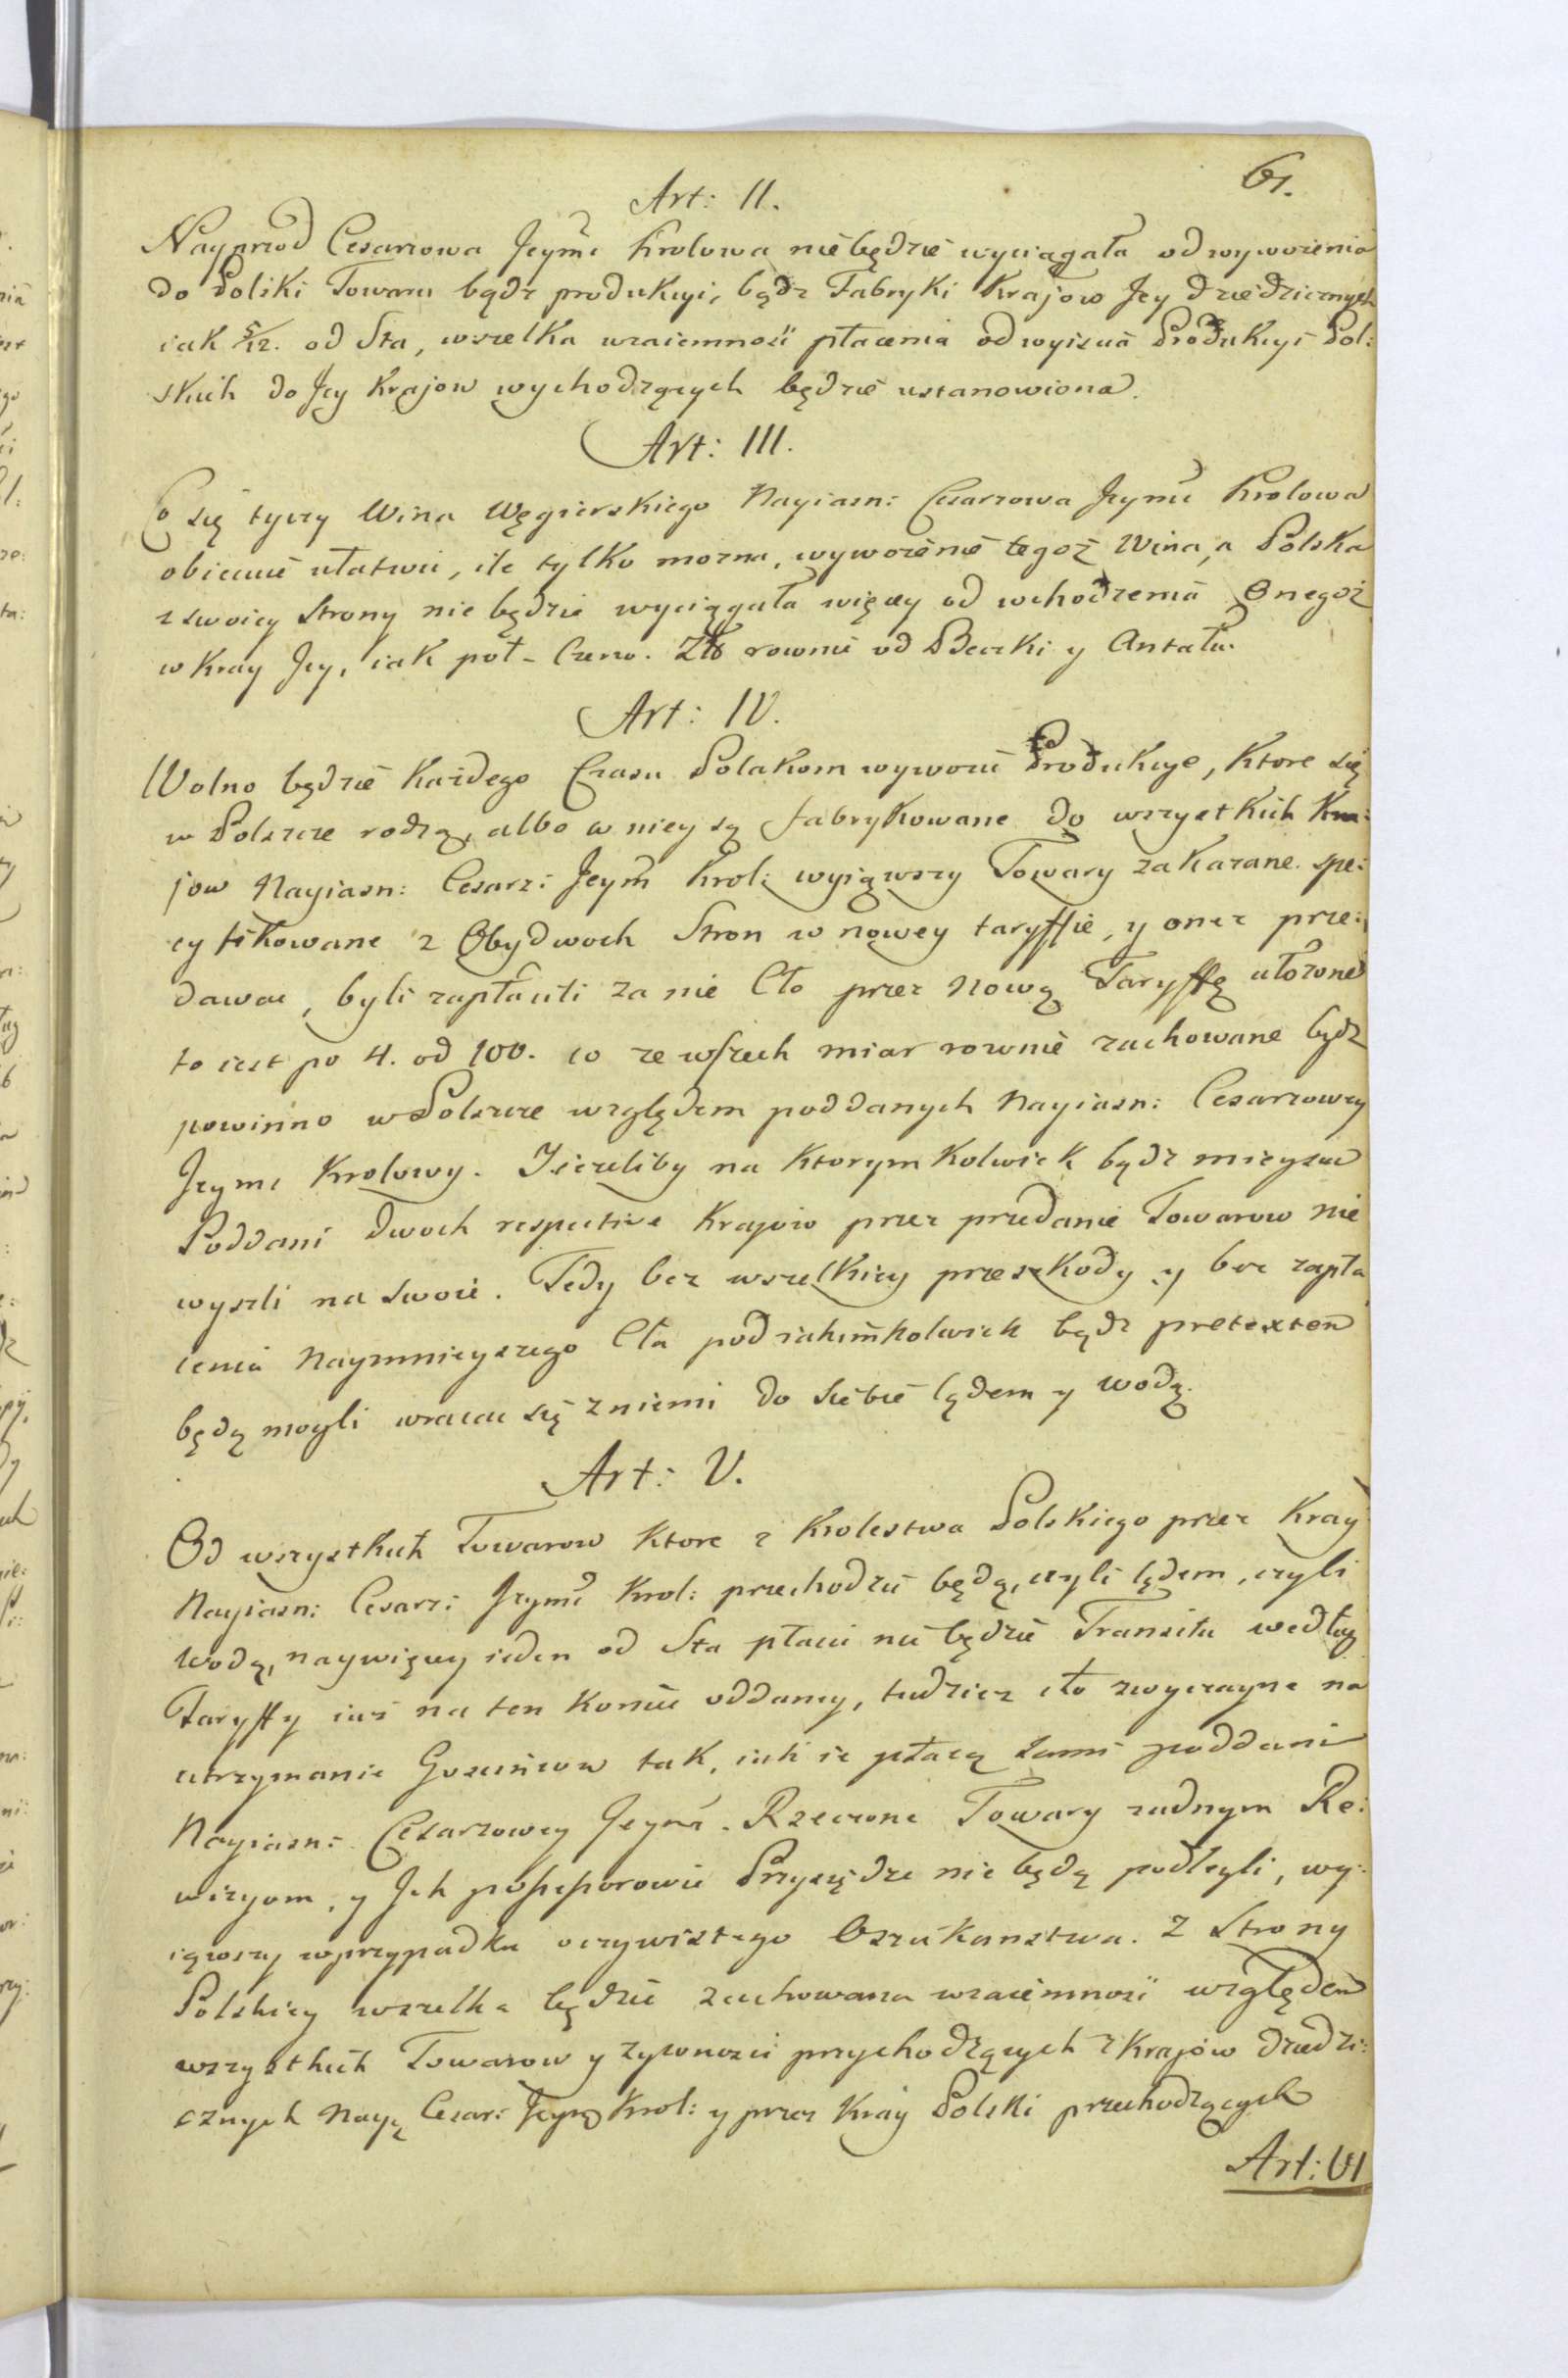 61.
Art: II.
Nayprzod Cesarzowa Jeymć Krolowa nie będzie wyciągała od wywozienia
do Polski Towaru bądz produkcyi, bądz Fabryki Krajow Jey dziedzicznych
iak 5/12. od Sta, wszelka wzaiemność płacenia od wyiscia Produkcyi Pol:
skich do Jey Krajow wychodzących będzie ustanowiona.
Art: III.
Co się tyczy Wina Węgierskiego Nayiasn: Cesarzowa Jeymć Krolowa
obiecuie ułatwić, ile tylko mozna, wywozienie tegoż Wina, a Polska
z swoiey Strony nie będzie wyciągała więcey od wchodzenia Onegoż
w Kray Jey, iak poł- Czerw. Zło rownie od Beczki y Antału.
Art: IV.
Wolno będzie Każdego Czasu Polakom wywozić Produkcye, Ktore się
w Polszcze rodzą, albo w niey są fabrykowane do wszystkich Kra:
jow Nayiasn: Cesarz: Jeym Krol: wyiąwszy Towary zakazane spe:
cyfikowane z Obydwoch Stron w nowey taryffie, y onez prze:
dawac, byli zapłacili za nie Cło przez Nową Taryffę ułozone
to iest po 4. od 100. co ze wszech miar rownie zachowane bydz
powinno w Polszcze względem poddanych Nayiasn: Cesarzowey
Jeymć Krolowy. Jeieliby na Ktorymkolwiek bądz mieyscu
Poddani dwoch respective Krajow przez przedanie Towarow nie
wyszli na swoie. Tedy bez wszelkiey przeszkody y bez zapła
cenia Naymnieyszego Cła pod iakimkolwiek bądz pretextem
będą mogli wracac się z niemi do siebie lądem y wodą.
Art: V.
Od wszystkich Towarow Ktore z Krolestwa Polskiego przez Kray
Nayiasn: Cesarz: Jeymć Krol: przechodzić będą, czyli lądem, czyli
wodą, naywięcey ieden od Sta płacić nie będzie Transitu według
Taryffy iuż na ten Koniec oddaney, tudziez cło zwyczayne na
utrzymanie Goscińcow tak, iak ie płacą sami poddani
Nayiasn: Cesarzowey Jeymć. Rzeczone Towary zadnym Re:
wizyom, y Jch Przysiędze nie będą podlegli, wy:
iąwszy w przypadku oczywistego Oszukanstwa. Z Strony
Polskiey wszelka będzie zachowana wzaiemność względem
wszystkich Towarow y zywnosci przychodzących z Krajow dziedzi:
cznych Nayą Cesar: Jeym Krol: y przez Kray Polski przechodzących
Art: VI